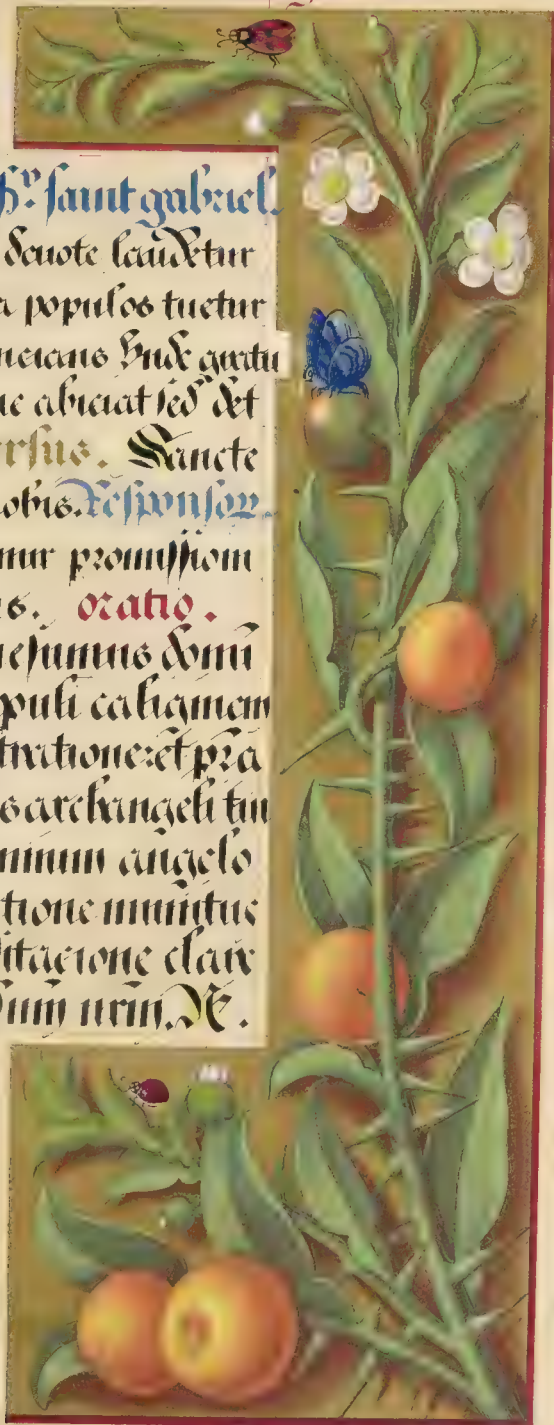 saint gabriel.
deuote laudetur
populos tuetur
nuncians unde gratu
abiciat sed det
rsus. Sancte
obis. Responsor
mur promissioni
s. oratio.
uesumus domi
puli caliginem
trationem et pra
s archangeli tui
minum angelo
tione munitus
sitacione clare
um nrm.